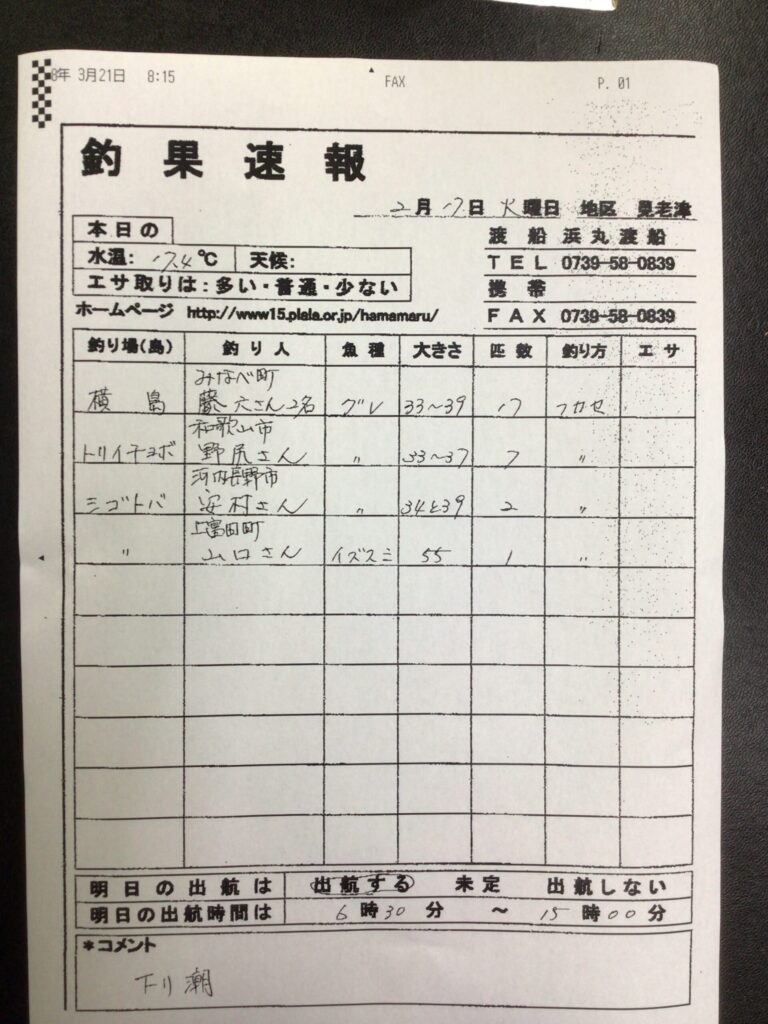 8年 3月21日 8:15 FAX P. 01
釣果速報
2月17日 火曜日 地区 見老津
本日の
水温: 17.4℃ 天候:
エサ取りは:多い・普通・少ない
渡船 浜丸渡船
TEL 0739-58-0839
携帯
FAX 0739-58-0839
ホームページ http://www15.plala.or.jp/hamamaru/
釣り場(島) 釣り人 魚種 大きさ 匹数 釣り方 エサ
みなべ町
横島 藤六さん2名 グレ 33〜39 17 フカセ
和歌山市
トリイチョボ 野尻さん 〃 33〜37 7 〃
河内長野市
シゴトバ 安村さん 〃 34と39 2 〃
上富田町
〃 山口さん イズスミ 55 1 〃
明日の出航は 出航する 未定 出航しない
明日の出航時間は 6時30分 〜 15時00分
*コメント
下り潮